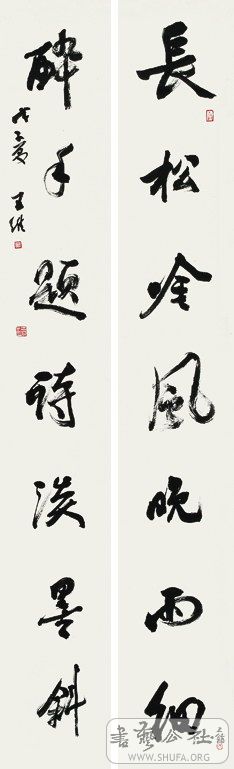 長松吟風晚雨細
醉手題詩淡墨斜
戊子夏
書藝公社
WWW.SHUFA.ORG